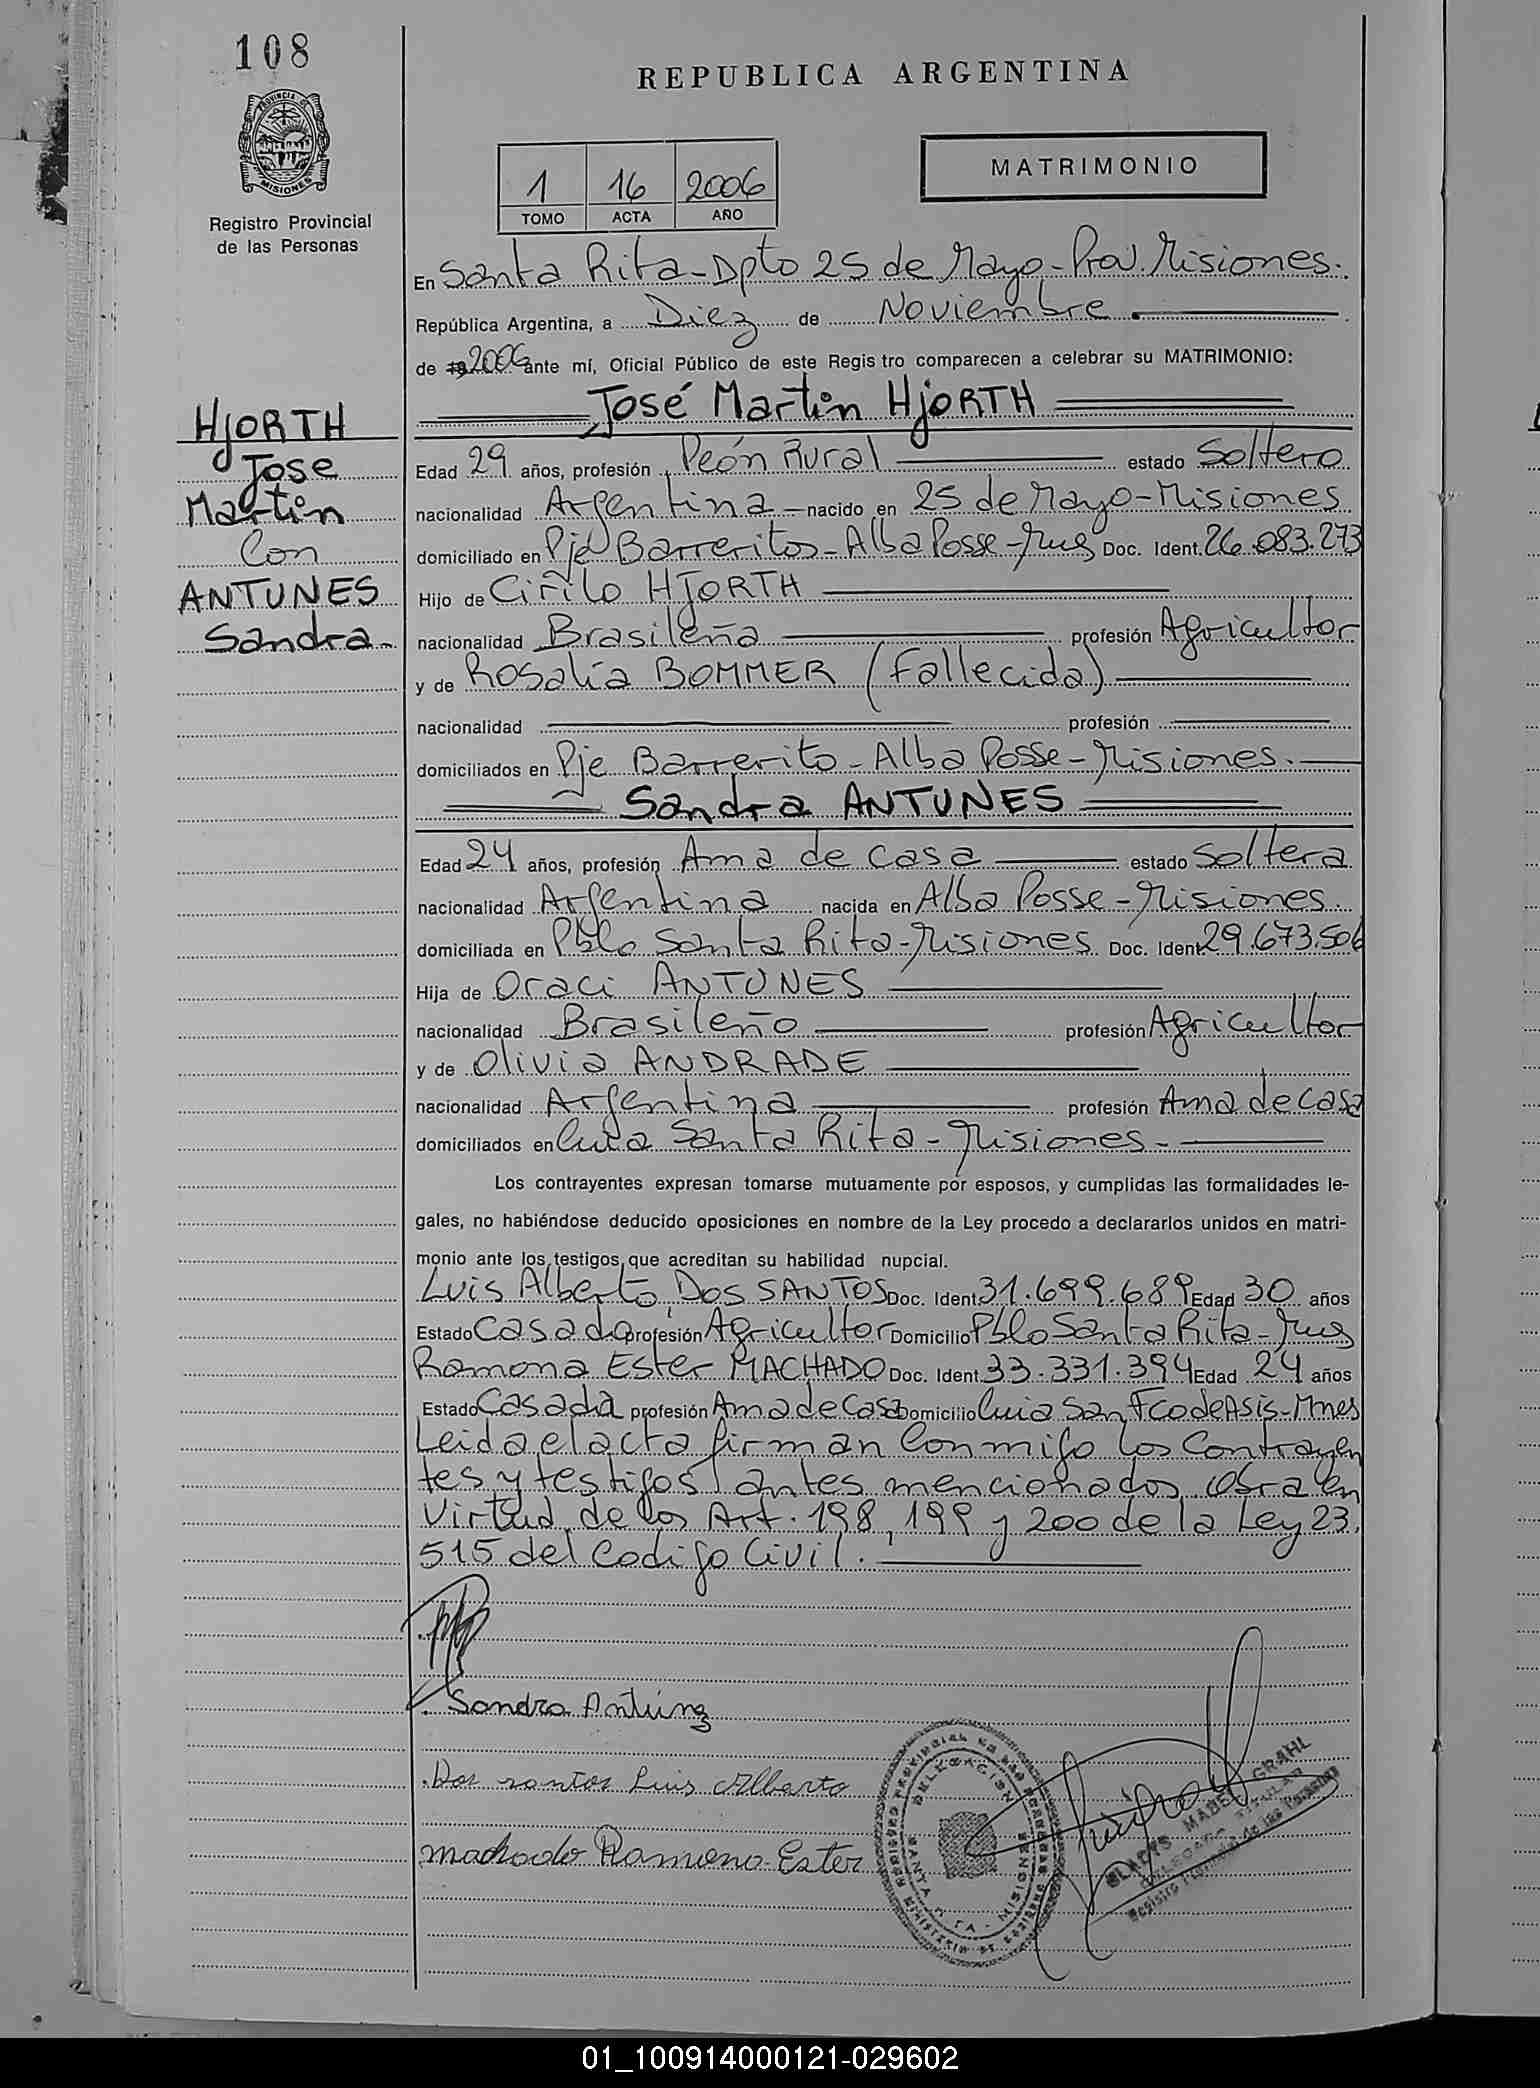 108
REPUBLICA ARGENTINA
PROVINCIA DE
MISIONES
MATRIMONIO
1 16 2006
TOMO ACTA AÑO
Registro Provincial
de las Personas
En Santa Rita - Dpto 25 de Mayo - Prov. Misiones.
República Argentina, a Diez de Noviembre
de 19 2006 ante mí, Oficial Público de este Regis tro comparecen a celebrar su MATRIMONIO:
José Martin HjORTH
HjORTH
Jose
Martin
Con
ANTUNES
Sandra.
Edad 29 años, profesión Peón Rural estado Soltero
nacionalidad Argentina - nacido en 25 de Mayo - Misiones
domiciliado en Pje Barreritos - Alba Posse - Mnes Doc. Ident. 26.083.273
Hijo de Cirilo HJORTH
nacionalidad Brasileña profesión Agricultor
y de Rosalía BOMMER (Fallecida)
nacionalidad profesión
domiciliados en Pje Barrerito - Alba Posse - Misiones.
Sandra ANTUNES
Edad 24 años, profesión Ama de casa estado Soltera
nacionalidad Argentina nacida en Alba Posse - Misiones.
domiciliada en Pblo Santa Rita - Misiones Doc. Ident. 29.673.506
Hija de Oraci ANTUNES
nacionalidad Brasileño profesión Agricultor
y de Olivia ANDRADE
nacionalidad Argentina profesión Ama de casa
domiciliados en Cnia Santa Rita - Misiones -
Los contrayentes expresan tomarse mutuamente por esposos, y cumplidas las formalidades le-
gales, no habiéndose deducido oposiciones en nombre de la Ley procedo a declararlos unidos en matri-
monio ante los testigos que acreditan su habilidad nupcial.
Luis Alberto DOS SANTOS Doc. Ident. 31.699.689 Edad 30 años
Estado Casado profesión Agricultor Domicilio Pblo Santa Rita - Mnes
Ramona Ester MACHADO Doc. Ident. 33.331.394 Edad 24 años
Estado Casada profesión Ama de Casa Domicilio Cnia San Fco de Asis - Mnes
Leida el acta firman Conmigo los Contrayen
tes y testigos antes mencionados obra en
Virtud de los Art. 198, 199 y 200 de la Ley 23.
515 del Codigo Civil.
Sandra Antúnez
Dos santos Luis Alberto
machado Ramona Ester
DELEGACION
SANTA RITA - MISIONES
GLADYS MABEL GRAHL
DELEGADA TITULAR
Registro Provincial de las Personas
01_100914000121-029602